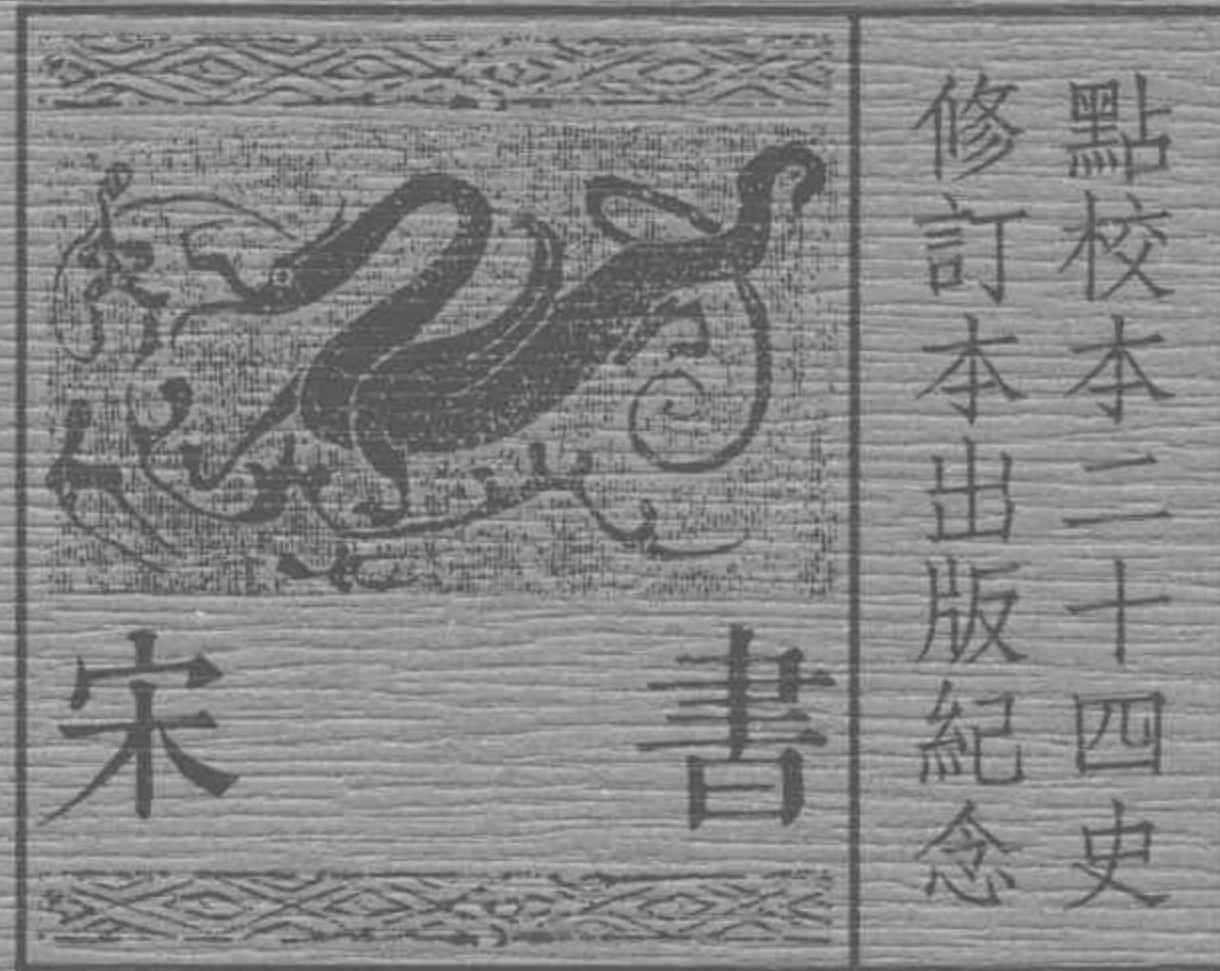 點校本二十四史
修訂本出版紀念
宋書